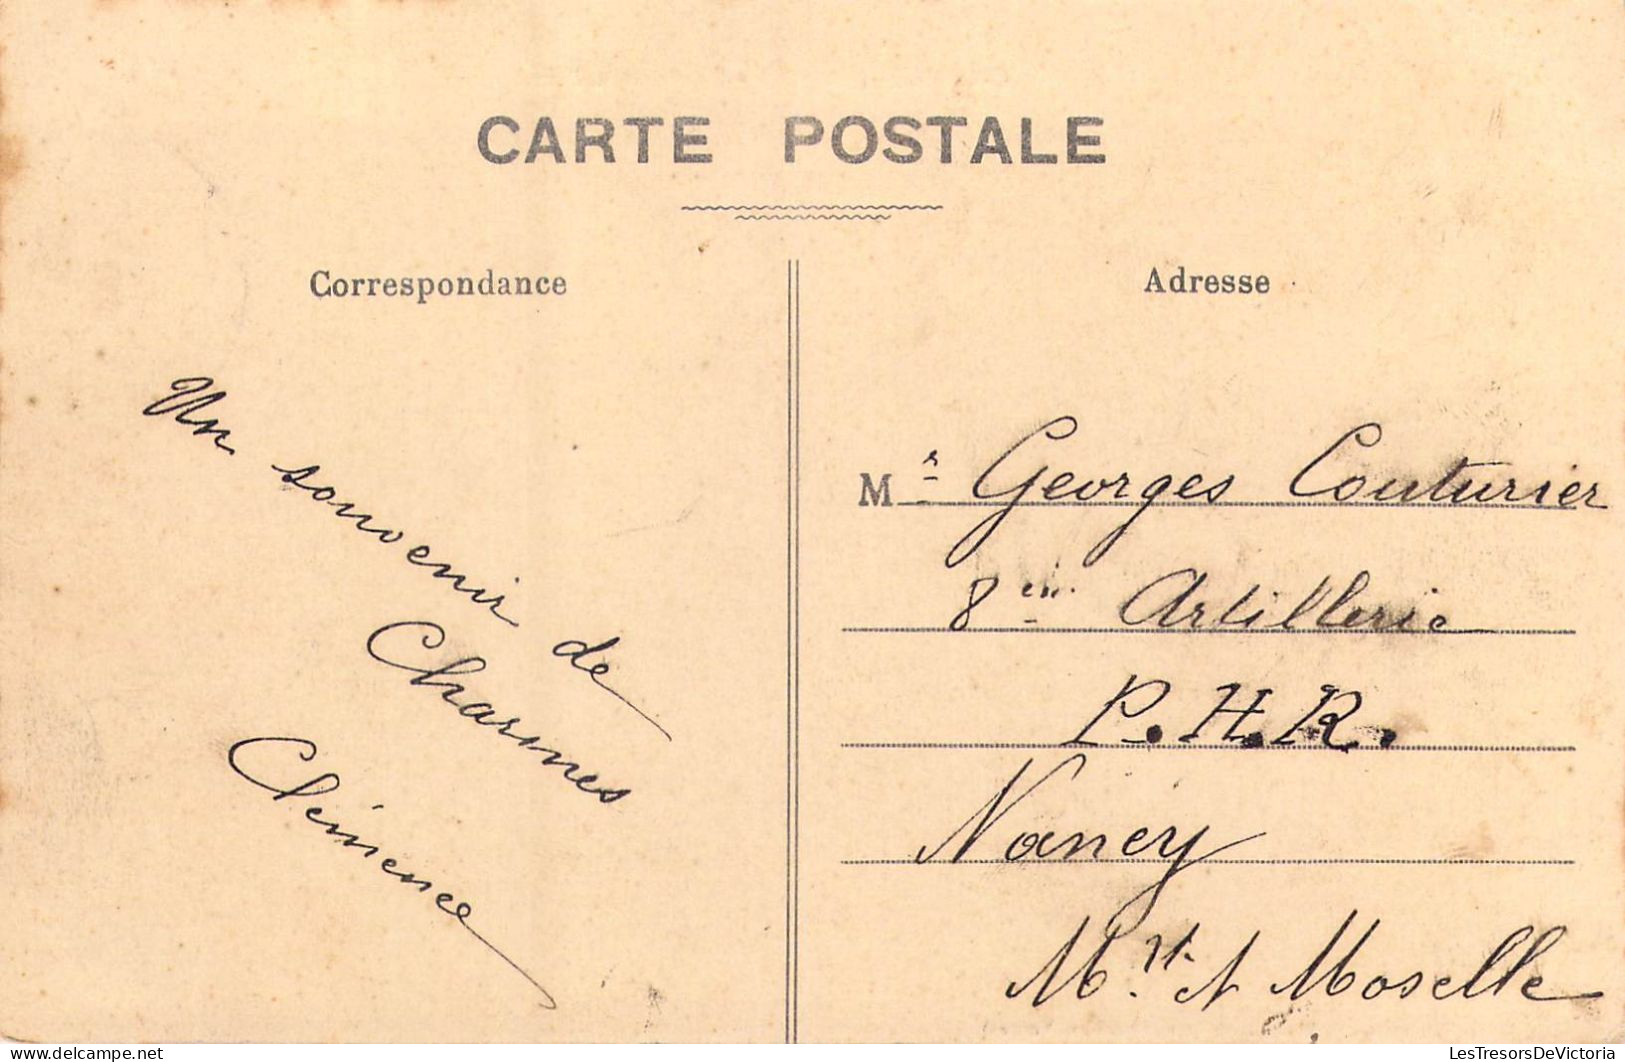 CARTE POSTALE
Correspondance
Adresse
Un souvenir de
Charmes
Clémence
Mr Georges Couturier
8em Artillerie
P.H.R.
Nancy
Mrt et Moselle
LesTresorsDeVictoria
www.delcampe.net